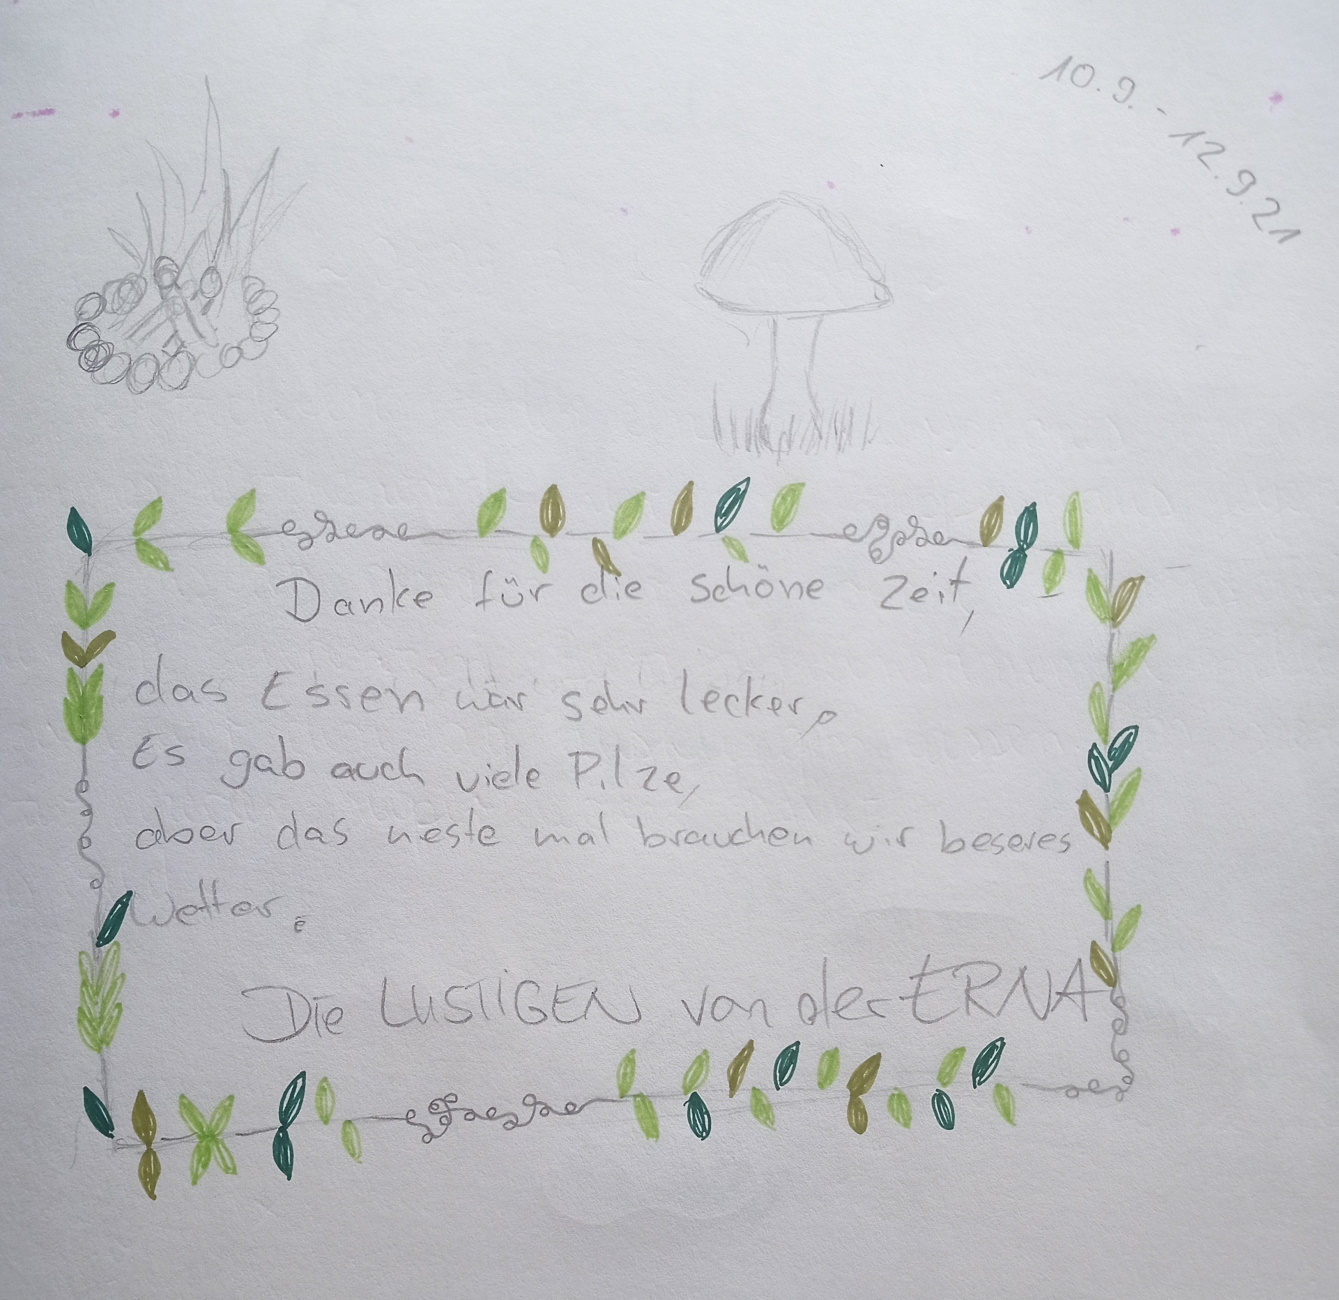 10.9. - 12.9.21
Danke für die schöne Zeit,
das Essen war sehr lecker,
Es gab auch viele Pilze,
aber das neste mal brauchen wir beseres
Wetter.
Die LUSTIGEN von der ERNA